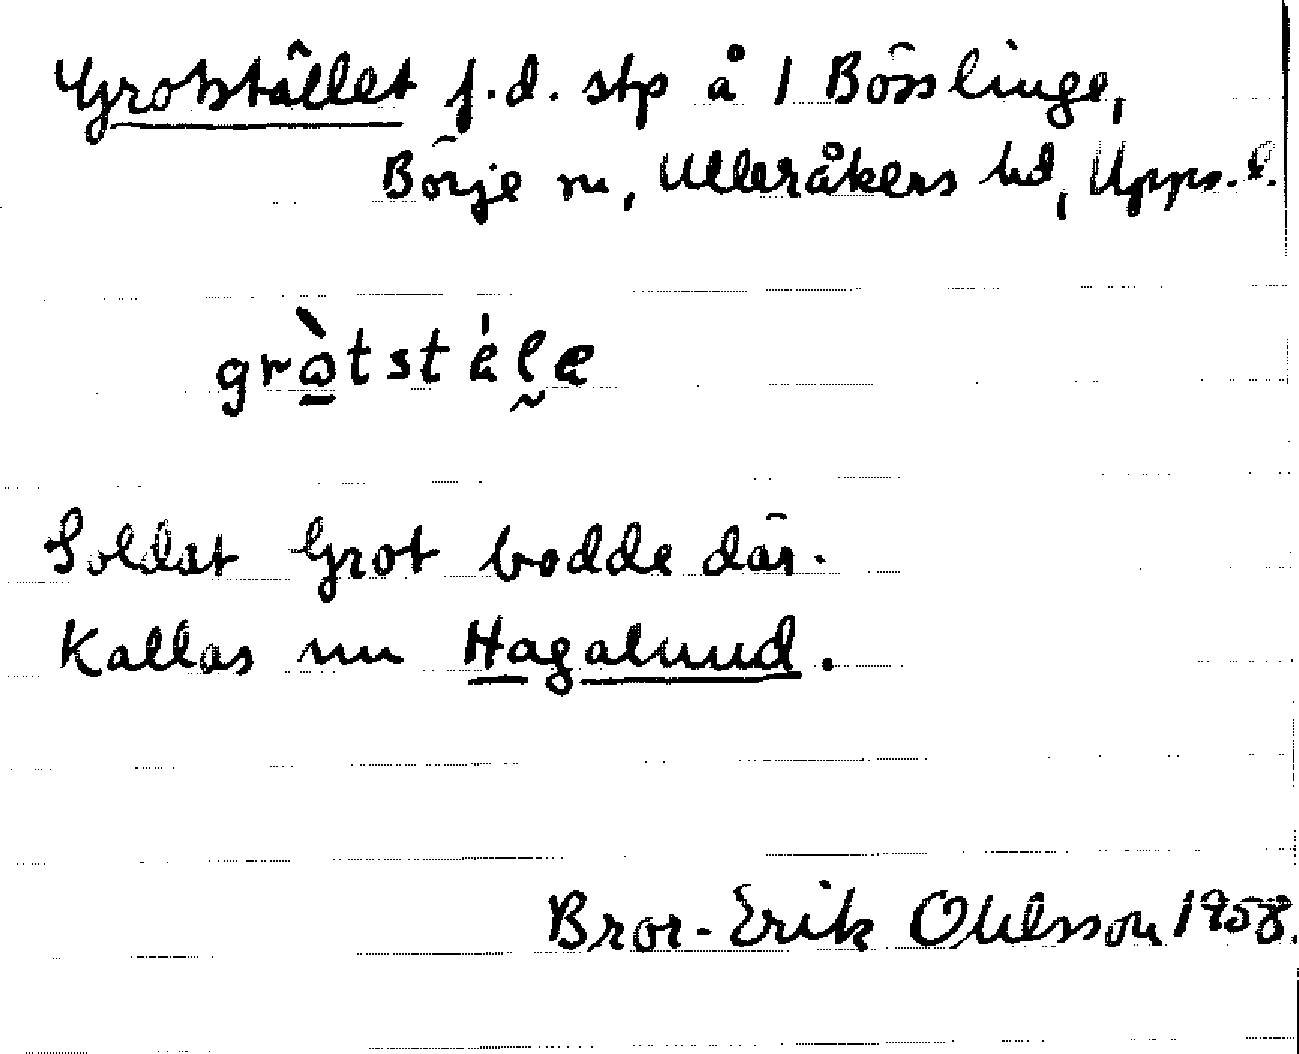 Grotstället f.d. stp å 1 Bösslinge,
Börje sn, Ulleråkers hd, Upps. l.
gròtstélе
Soldat Grot bodde där.
Kallas nu Hagalund.
Bror-Erik Ohlsson 1958.